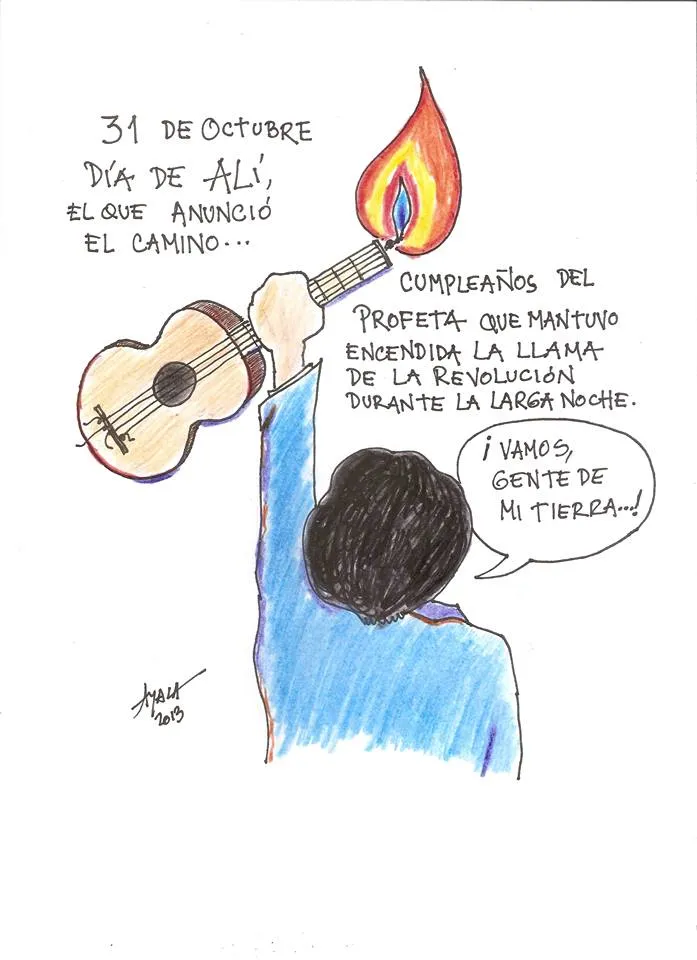 31 DE OCTUBRE
DÍA DE ALÍ,
EL QUE ANUNCIÓ
EL CAMINO...
CUMPLEAÑOS DEL
PROFETA QUE MANTUVO
ENCENDIDA LA LLAMA
DE LA REVOLUCIÓN
DURANTE LA LARGA NOCHE.
¡VAMOS,
GENTE DE
MI TIERRA...!
AYALA
2013